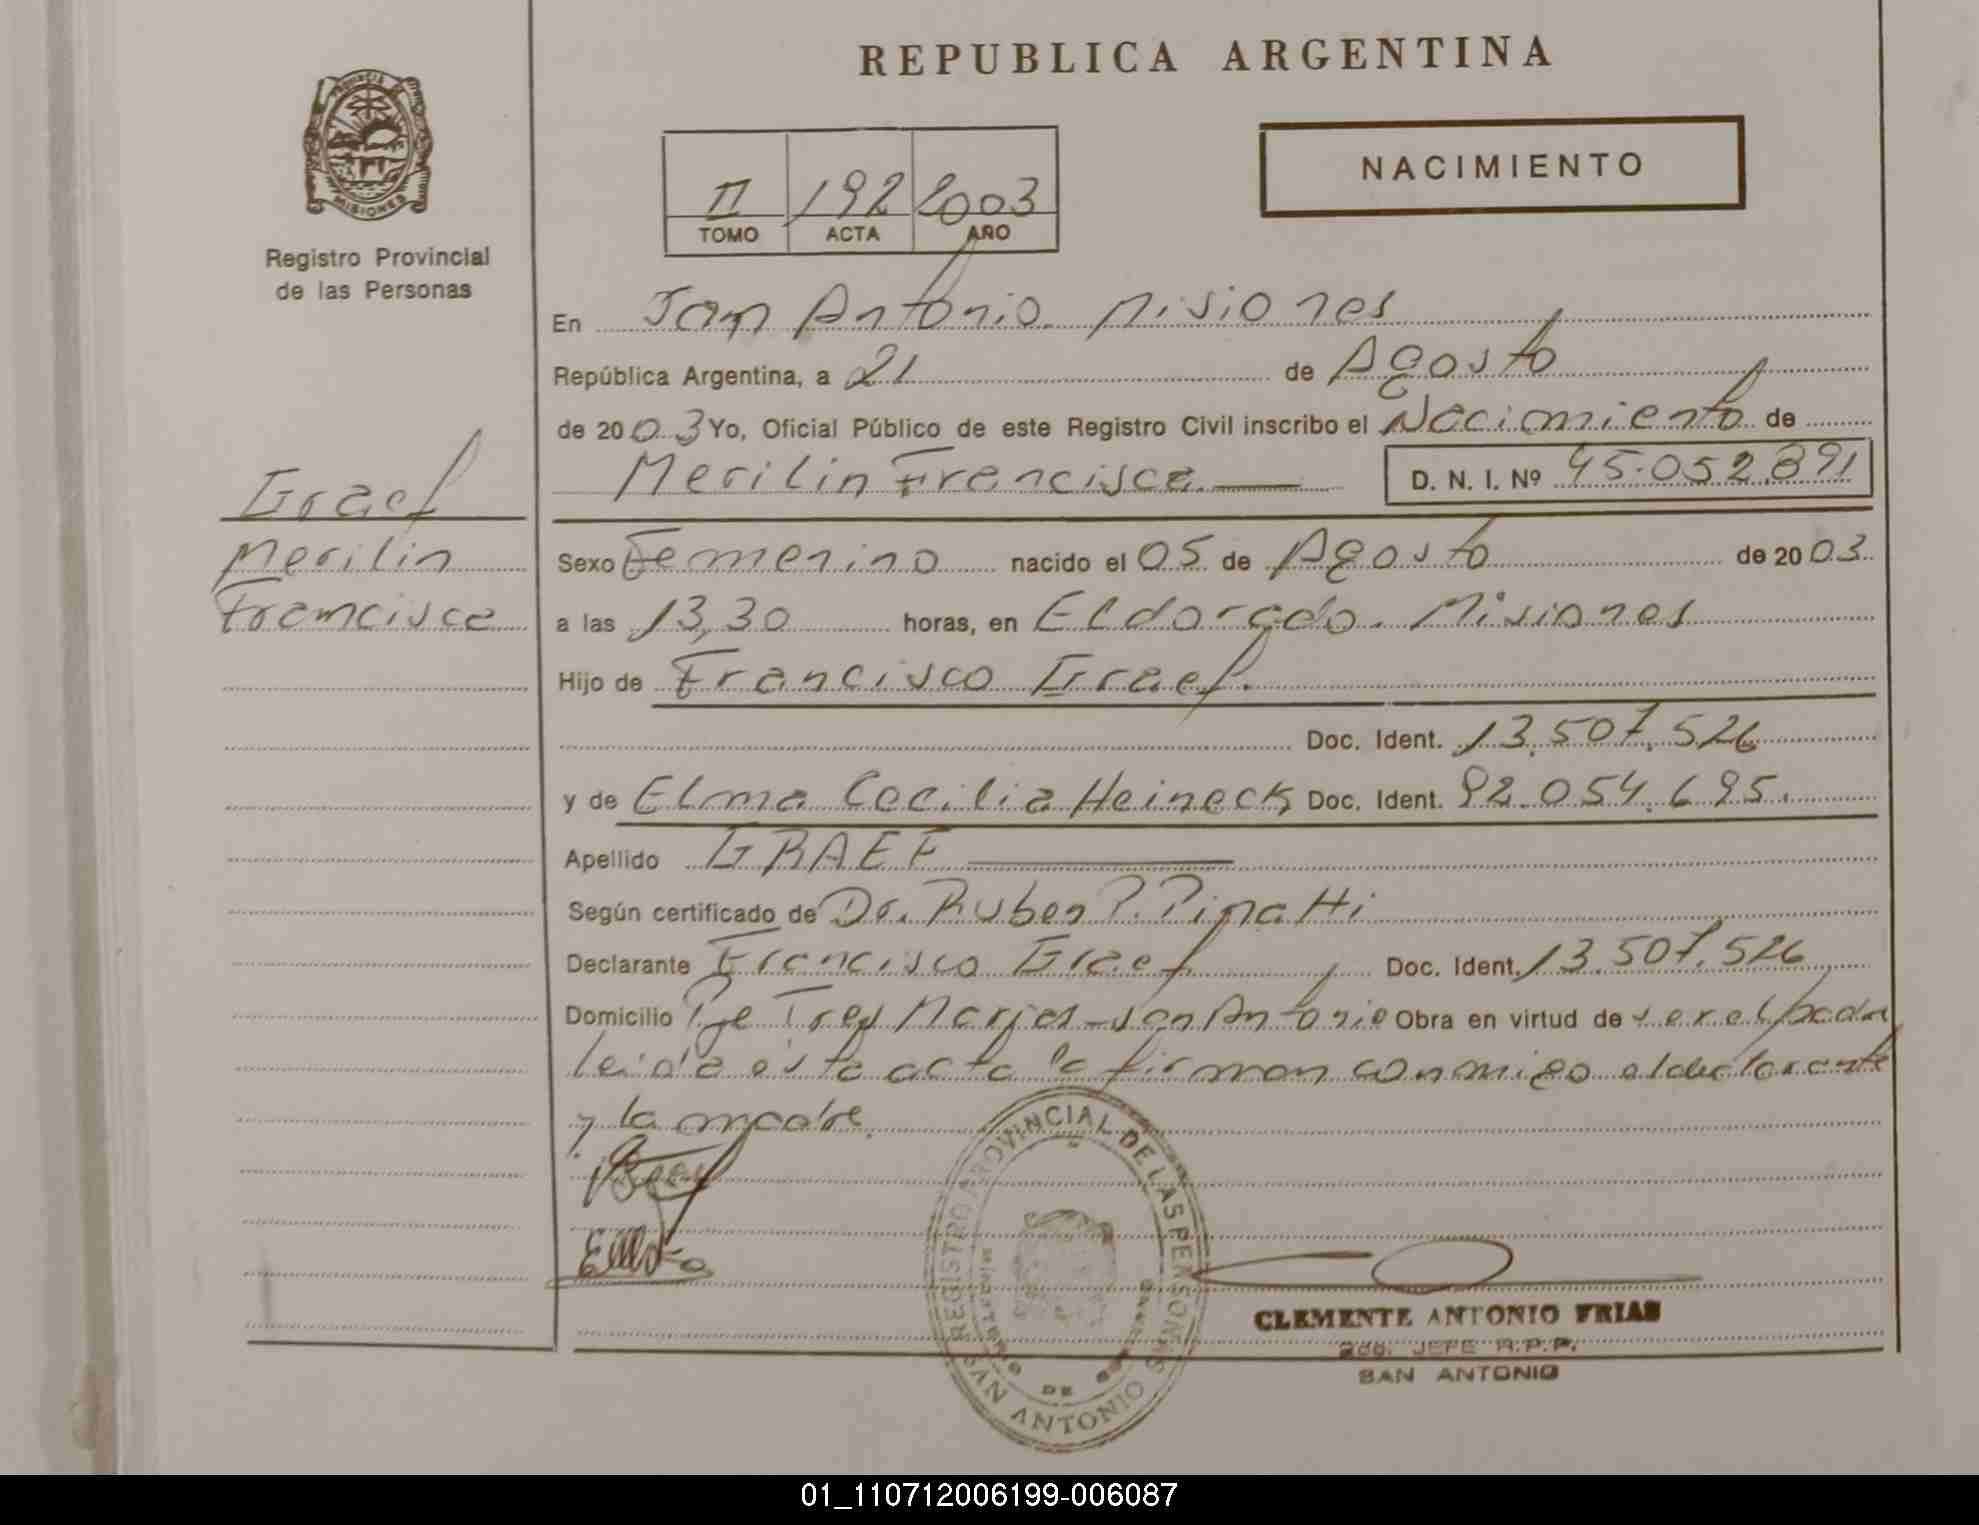 REPUBLICA ARGENTINA
PROVINCIA DE MISIONES
Registro Provincial
de las Personas
NACIMIENTO
II 192 2003
TOMO ACTA AÑO
En San Antonio. Misiones
República Argentina, a 21 de Agosto
de 2003 Yo, Oficial Público de este Registro Civil inscribo el Nacimiento de
Merilin Francisca. D. N. I. Nº 45.052.891
Graef
Merilin
Francisca
Sexo Femenino nacido el 05 de Agosto de 2003.
a las 13,30 horas, en Eldorado. Misiones
Hijo de Francisco Graef.
Doc. Ident. 13.507.526
y de Elma Cecilia Heineck Doc. Ident. 92.054.695.
Apellido GRAEF
Según certificado de Dr. Ruben P. Pinatti
Declarante Francisco Graef Doc. Ident. 13.507.526
Domicilio Pje Tres Marías - San Antonio Obra en virtud de ser el padre
leida esta acta la firman conmigo el declarante
y la madre.
REGISTRO PROVINCIAL DE LAS PERSONAS
SAN ANTONIO
CLEMENTE ANTONIO FRIAS
2do. JEFE R.P.P.
SAN ANTONIO
01_110712006199-006087